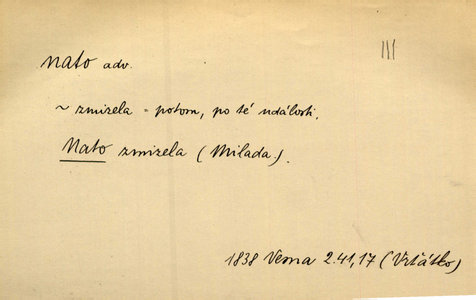 nato adv. III
~ zmizela = potom, po té události.
Nato zmizela (Milada).
1838 Vesna 2.41,17 (Vrťátko)